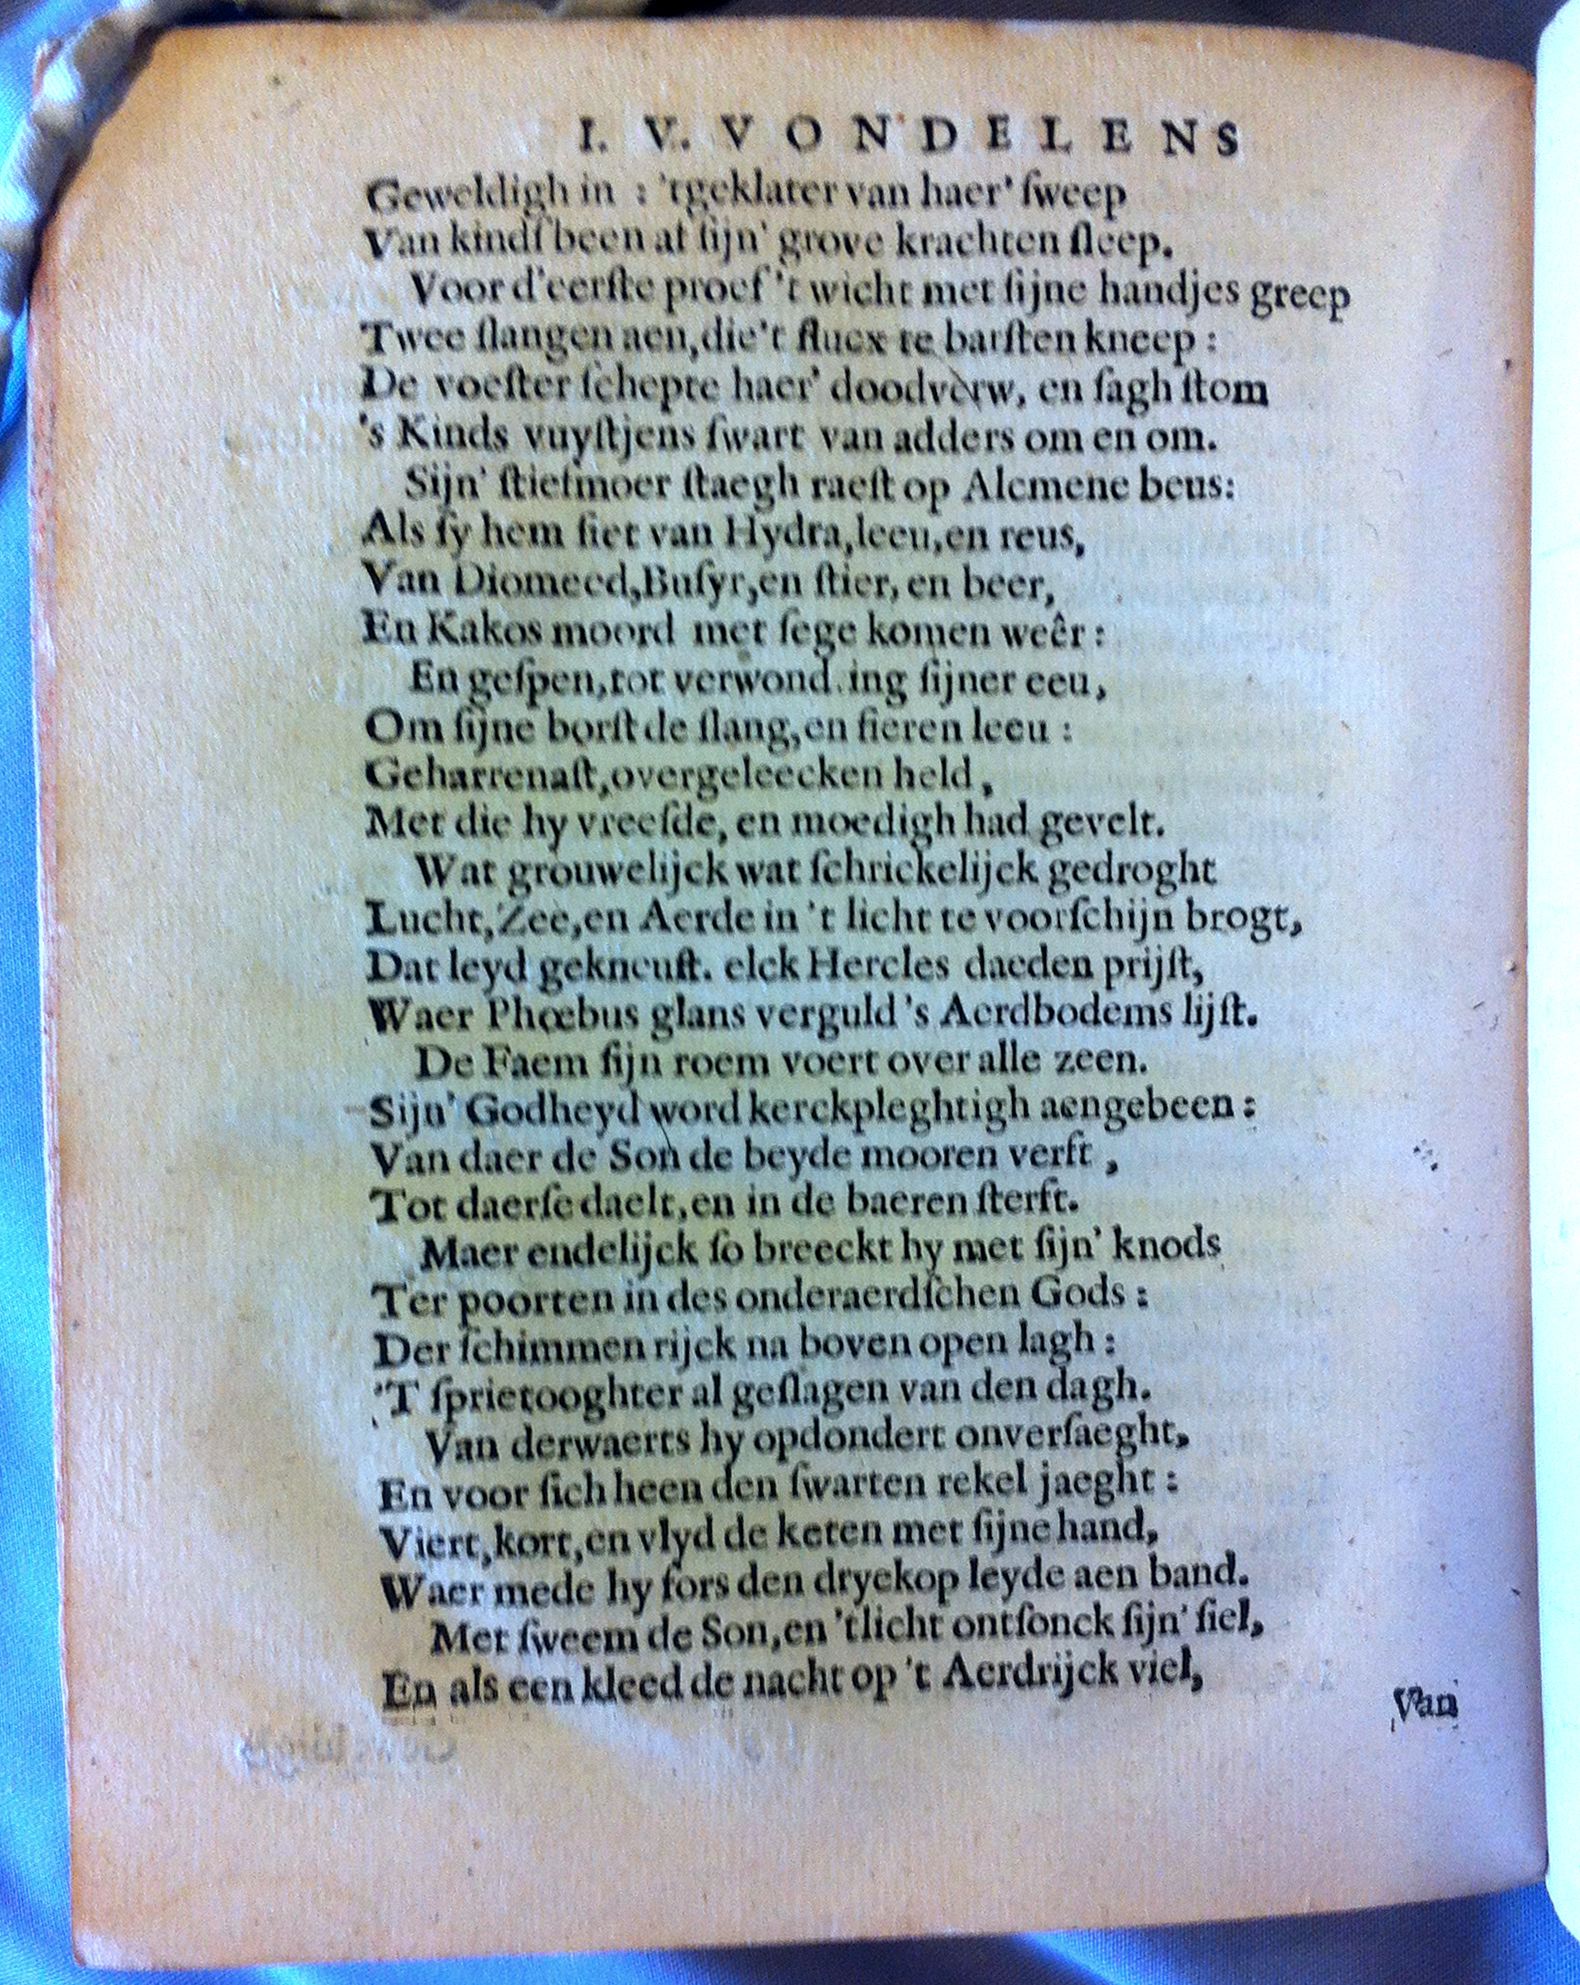 I. V. VONDELENS
Geweldigh in : 'tgeklater van haer' ſweep
Van kindſ been af ſijn' grove krachten ſleep.
Voor d'eerſte proef 't wicht met ſijne handjes greep
Twee ſlangen aen, die't flucx te barſten kneep :
De voeſter ſchepte haer' doodverw, en ſagh ſtom
's Kinds vuyſtjens ſwart van adders om en om.
Sijn' ſtiefmoer ſtaegh raeſt op Alcmene beus:
Als ſy hem ſiet van Hydra, leeu, en reus,
Van Diomeed, Buſyr, en ſtier, en beer,
En Kakos moord met ſege komen weêr :
En geſpen, tot verwond ing ſijner eeu,
Om ſijne borſt de ſlang, en fieren leeu :
Geharrenaſt, overgeleecken held,
Met die hy vreeſde, en moedigh had gevelt.
Wat grouwelijck wat ſchrickelijck gedroght
Lucht, Zee, en Aerde in 't licht te voorſchijn brogt,
Dat leyd gekneuſt. elck Hercles daeden prijſt,
Waer Phœbus glans verguld 's Aerdbodems lijſt.
De Faem ſijn roem voert over alle zeen.
Sijn' Godheyd word kerckpleghtigh aengebeen :
Van daer de Son de beyde mooren verft,
Tot daerſe daelt, en in de baeren ſterft.
Maer endelijck ſo breeckt hy met ſijn' knods
Ter poorten in des onderaerdſchen Gods :
Der ſchimmen rijck na boven open lagh :
'T ſprietooghter al geſlagen van den dagh.
Van derwaerts hy opdondert onverſaeght,
En voor ſich heen den ſwarten rekel jaeght :
Viert, kort, en vlyd de keten met ſijne hand,
Waer mede hy fors den dryekop leyde aen band.
Met ſweem de Son, en 't licht ontſonck ſijn' ſiel,
En als een kleed de nacht op 't Aerdrijck viel,
Van